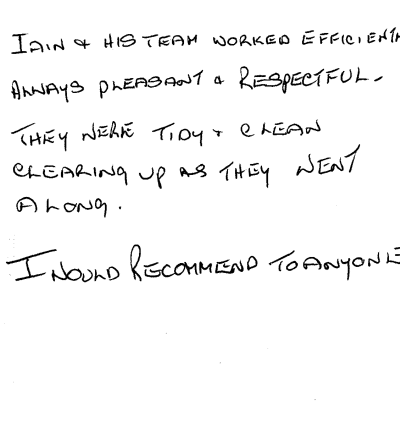 IAIN & HIS TEAM WORKED EFFICIENTL
ALWAYS PLEASANT & RESPECTFUL.
THEY WERE TIDY & CLEAN
CLEARING UP AS THEY WENT
ALONG.
I WOULD RECOMMEND TO ANYONE